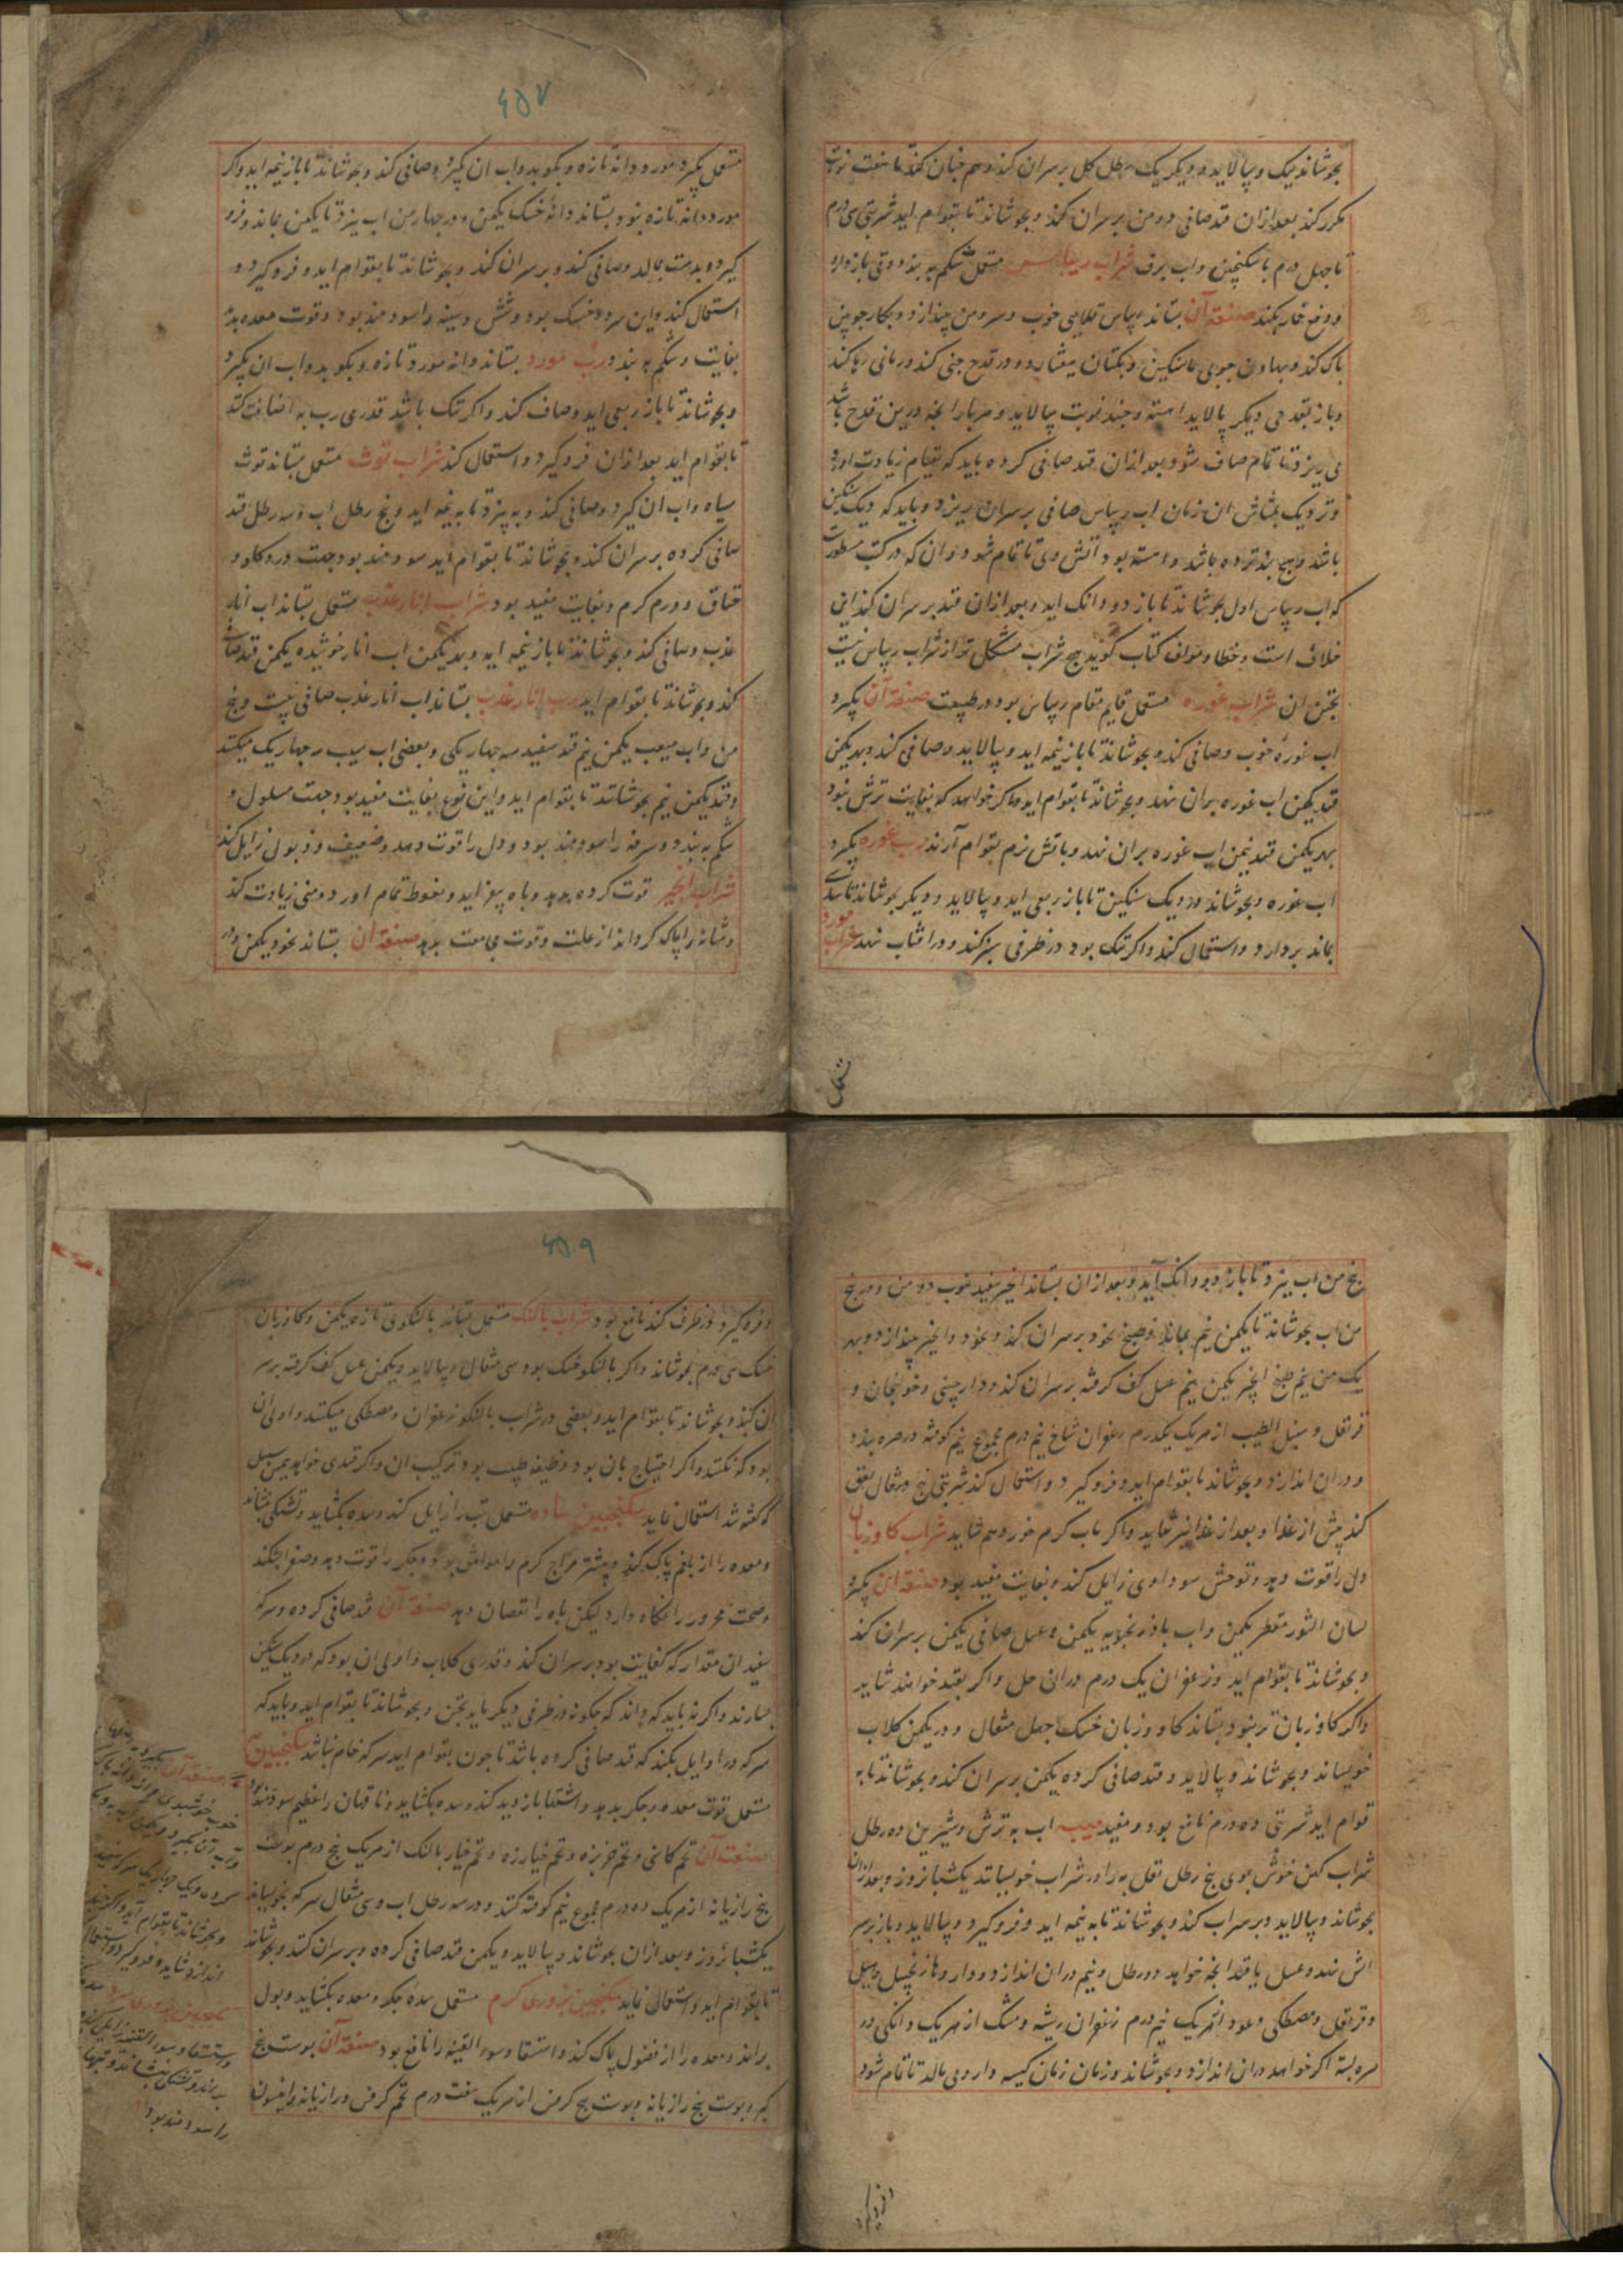 بجوشاند نیک و بپالاید و دیگر یک رطل گل بر سر آن کند و هم چنان کند تا هفت نوبت
مکرر کند بعد ازان قند صافی دو من بر سران کند و بجوشاند تا بقوام اید شربتی سی درم
تا چهل درم با سکنجبین و اب برف شراب ریباس مستعمل شکم به بندد و قی باز دارد
و دفع خمار بکند صنعة آن بستاند ریباس خوب و سر و بن بیندازد و بکارد چوبین
پاک کند و بهاون چوبی یا سنگین بکتان بیفشارد و در قدح چینی کند و زمانی رها کند
و باز بقدحی دیگر پالاید اهسته و چند نوبت بپالاید و هر بار انچه در بن قدح باشد
می ریزد تا تمام صاف شود بعد ازان قند صافی کرده باید که بقوام زیادت اورد
و نزدیک ان زمان اب ریباس صافی بر سران ریزد و باید که دیک سنگین
باشد و هیچ نباشد و اهسته بود آتش وی تا تمام شود و ان که در کتب مسطورست
که اب ریباس اول بجوشاند تا باز دو دانک اید و بعد ازان قند بر سران کند این
خلاف است و خطا و مولف کتاب گوید هیچ شراب مشکل تر از شراب ریباس نیست
پختن ان شراب غوره مستعمل قایم مقام ریباس بود در طبیعت صنعة آن بگیرد
اب غوره خوب و صافی کند و بجوشاند تا باز نیمه اید و بپالاید و صافی کند و بهر یکمن
قند یکمن اب غوره بران نهد و بجوشاند تا بقوام اید و اگر خواهد که بغایت ترش نبود
بهر یکمن قند نیمن اب غوره بران نهد و باتش نرم بقوام آرند رب غوره بگیرد
اب غوره و بجوشاند در دیک سنگین تا باز ربعی اید و بپالاید و دیگر بجوشاند تا
بماند بردارد و استعمال کند و اگر تنک بود در ظرفی سبز کند و در افتاب نهد شراب مورد
مستعمل
۴۵۷
مستعمل بگیرد مورد دانه تازه و بکوبد و اب ان بگیرد و صافی کند و بجوشاند تا باز نیمه اید و اگر
مورد دانه تازه نبود بستاند دانه خشک یکمن و در چهار من اب بپزد تا یکمن بماند و فرو
گیرد و بدست بمالد و صافی کند و بر سران کند و بجوشاند تا بقوام اید و فرو گیرد و
استعمال کند و این سرد و خشک بود و شش و سینه را سودمند بود و قوت معده بدهد
بغایت و شکم به بندد رب مورد بستاند دانه مورد تازه و بکوبد و اب ان بگیرد
و بجوشاند تا باز ربعی اید و صاف کند و اگر تنک باشد قدری رب به اضافت کند
تا بقوام اید بعد ازان فرو گیرد و استعمال کند شراب توث مستعمل بستاند توث
سیاه و اب ان گیرد و صافی کند و به پزد تا به نیمه اید و پنج رطل اب و سه رطل قند
صافی کرده بر سران کند و بجوشاند تا بقوام اید سودمند بود جهت درد گلو و
خناق و ورم گرم و بغایت مفید بود شراب انار عذب مستعمل بستاند اب انار
عذب و صافی کند و بجوشاند تا باز نیمه اید و بهر یکمن اب انار خوشیده یکمن قند صاف
کند و بجوشاند تا بقوام اید رب انار عذب بستاند اب انار عذب صافی بیست و پنج
من و اب سیب یکمن نیم قند سفید سه چهار یکی و بعضی اب سیب سه چهار یک میکنند
و قند یکمن نیم بجوشانند تا بقوام اید و این نوع بغایت مفید بود جهت مسلول و
شکم به بندد و سرفه را سودمند بود و دل را قوت دهد و ضعیف و ذبول زایل کند
شراب انجیر قوت گرده بدهد و باه بیفزاید و نعوظ تمام اورد و منی زیادت کند
و مثانه را پاک گرداند از علت و قوت مجامعت بدهد صنعة ان بستاند نخود یکمن و در
پنج من اب بپزد تا باز دو دانک آید و بعد ازان بستاند انجیر سفید خوب دو من و در پنج
من اب بجوشاند تا یکمن نیم بماند و طبیخ نخود بر سران کند و نخود و انجیر بیندازد و بهر
یک من نیم طبیخ انجیر یکمن نیم عسل کف گرفته بر سران کند و دارچینی و خولنجان و
قرنفل و سنبل الطیب از هر یک یکدرم زعفران شاخ نیم درم مجموع نیم کوفته در صره بندد
و در ان اندازد و بجوشاند تا بقوام اید و فرو گیرد و استعمال کند شربتی پنج مثقال لعق
کند پیش از غذا و بعد از غذا نیز شاید و اگر باب گرم خورد هم شاید شراب گاو زبان
دل را قوت دهد و توحش سوداوی زایل کند و بغایت مفید بود صنعة ان بگیرد
لسان الثور مقطر یکمن و اب بادرنجبویه یکمن و عسل صافی یکمن بر سران کند
و بجوشاند تا بقوام اید و زعفران یک درم دران حل و اگر بقند خواهند شاید
و اگر گاو زبان تر نبود بستاند گاو زبان خشک چهل مثقال و در یکمن گلاب
خویساند و بجوشاند و بپالاید و قند صافی کرده یکمن بر سران کند و بجوشاند تا به
قوام اید شربتی ده درم نافع بود و مفید میبه اب به ترش و شیرین ده رطل
شراب کهن خوش بوی پنج رطل ثفل به را در شراب خویساند یکشبانروز و بعد ازان
بجوشاند و بپالاید و بر سراب کند و بجوشاند تا به نیمه اید و فرو گیرد و بپالاید و باز بر سر
اتش نهد و عسل یا قند انچه خواهد دو رطل و نیم دران اندازد و زنجبیل و هیل
و قرنفل و مصطکی و عود از هر یک نیم درم زعفران ریشه و مشک از هر یک دانکی در
صره بسته اگر خواهد دران اندازد و بجوشاند و زمان زمان کیسه دارو می مالد تا تمام شود
و فرو گیرد
۴۵۹
و فرو گیرد و در ظرف کند نافع بود شراب بالنک مستعمل بستاند بالنکوی تازه یکمن و گاو زبان
خشک سی درم بجوشاند و اگر بالنکو خشک بود سی مثقال و بپالاید و یکمن عسل کف گرفته بر سر
ان کند و بجوشاند تا بقوام اید و بعضی در شراب بالنکو زعفران و مصطکی میکنند و اولی ان
بود که نکنند و اگر احتیاج بان بود وظیفه طبیب بود ترکیب ان و اگر قندی خواهد بهمین سبیل
که گفته شد استعمال نماید سکنجبین ساده مستعمل تب را زایل کند و سده بگشاید و تشنگی بنشاند
و معده را از بلغم پاک کند و بیشتر مزاج گرم را موافق بود و جگر را قوت دهد و صفرا بشکند
و صحت محرور را نگاه دارد لیکن باه را نقصان دهد صنعة آن قند صافی کرده و سرکه
سفید ان مقدار که کفایت بود بر سران کند و قدری گلاب و اولی ان بود که در دیک سنگین
بسازند و اگر نه باید که داند که چگونه در ظرفی دیگر باید پختن و بجوشاند تا بقوام اید و باید که
سرکه در اوایل بکند که قند صافی کرده باشد تا چون بقوام اید سرکه خام نباشد سکنجبین
مستعمل قوت معده و جگر بدهد و اشتها بازدید کند و سده بگشاید و ناقهان را عظیم سودمند بود
صنعت آن تخم کاسنی و تخم خربزه و تخم خیارزه و تخم خیار بالنک از هر یک پنج درم پوست
بیخ رازیانه از هر یک ده درم مجموع نیم کوفته کنند و در سه رطل اب و سی مثقال سرکه بخویساند
یکشبانروز و بعد ازان بجوشاند و بپالاید و یکمن قند صافی کرده بر سران کند و بجوشاند
تا بقوام اید و استعمال نماید سکنجبین بزوری گرم مستعمل سده جگر و معده بگشاید و بول
براند و معده را از فضول پاک کند و استسقا و سوء القنیه را نافع بود صنعة آن پوست بیخ
کبر و پوست بیخ رازیانه و پوست بیخ کرفس از هر یک هفت درم تخم کرفس و رازیانه و انیسون
صنعة آن بگیرد
و بجوشاند تا بقوام آید و اگر
اندازد شاید و فرو گیرد و استعمال
و استسقا و سوء القنیه زایل کند
براند و تشنگی بنشاند و تبهای
را سودمند بود